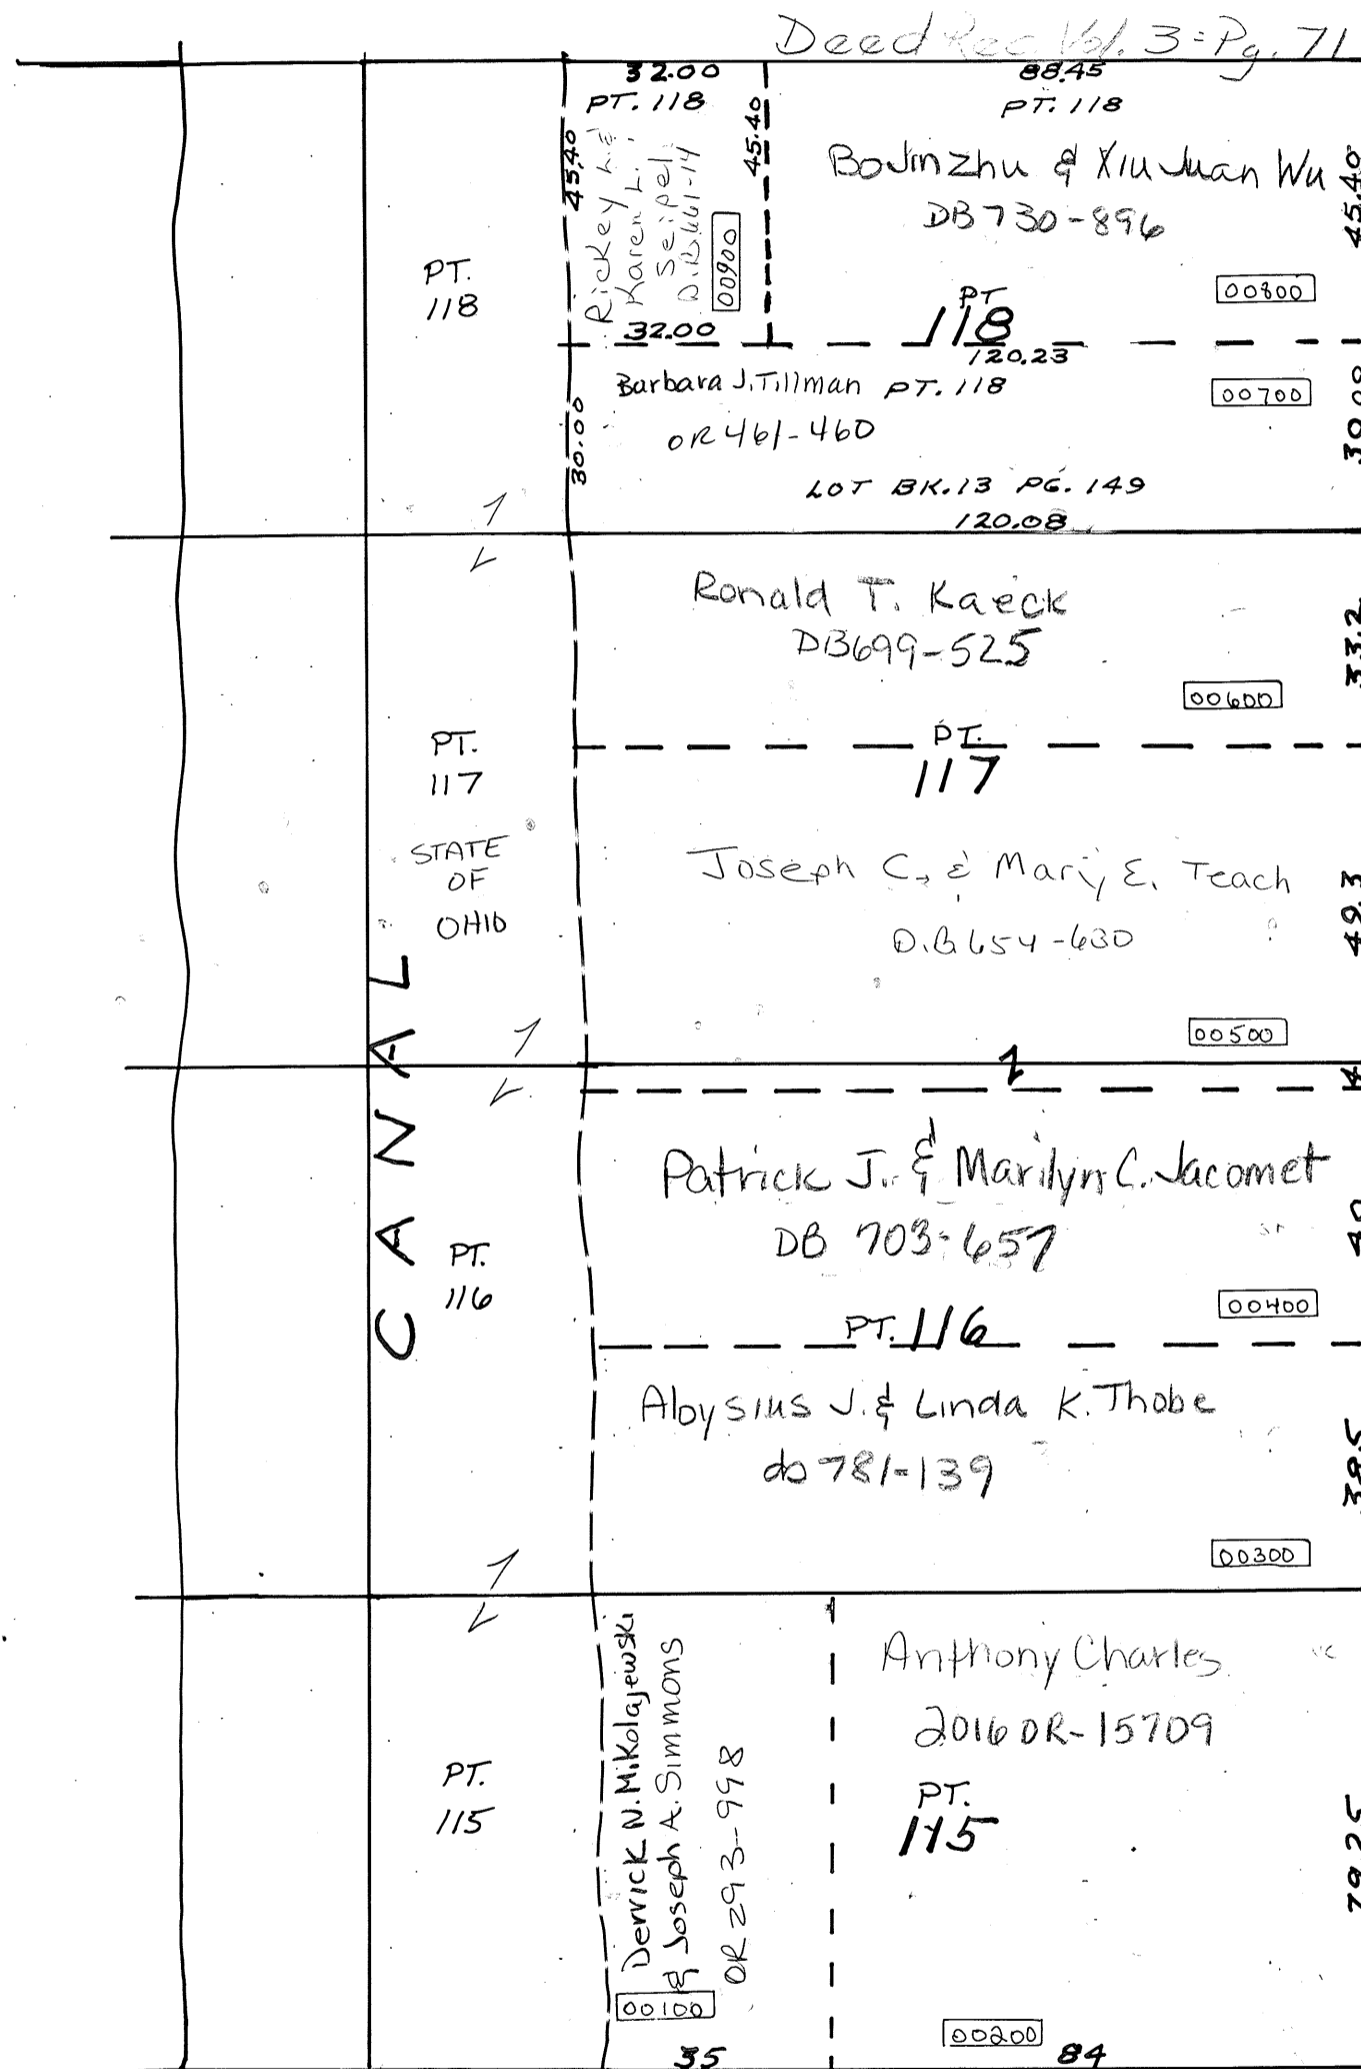 Deed Rec Vol. 3 = Pg. 71
32.00
PT. 118
45.40
45.40
Rickey L. &
Karen L.
Seipel
00900
32.00
88.45
PT. 118
BoJinzhu & XiuJuan Wu
DB 730-896
45.40
00800
PT
118
120.23
PT.
118
Barbara J. Tillman PT. 118
00700
OR 461-460
30.00
LOT BK.13 PG. 149
120.08
Ronald T. Kaeck
DB699-525
33.2
00600
PT.
117
PT.
117
STATE
OF
OHIO
Joseph C. & Mary E. Teach
D.B 654-630
49.3
00500
CANAL
4
Patrick J. & Marilyn C. Jacomet
DB 703-657
40
00400
PT.
116
PT. 116
Aloysius J. & Linda K. Thobe
db 781-139
38.5
00300
Derrick N. Mikolajewski
& Joseph A. Simmons
OR 293-998
00100
35
Anthony Charles
2016 OR-15709
PT.
115
PT.
115
79.25
00200
84